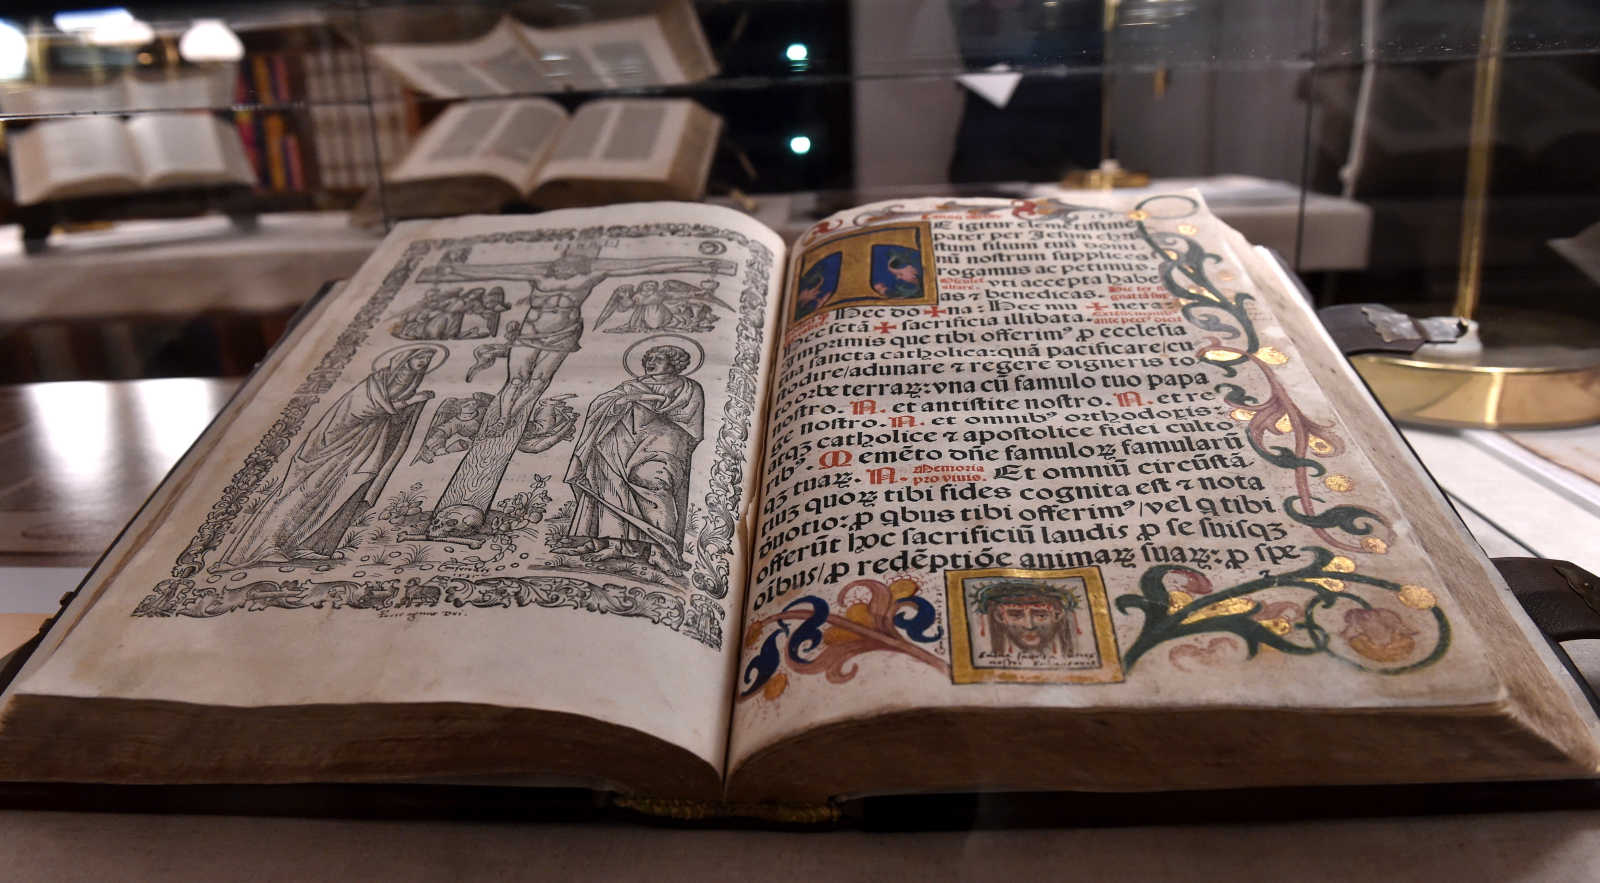 Ecce agnus Dei.
E igitur clemētissime
pater per Jesum chri
stum filium tuū domi
nū nostrum supplices
rogamus ac petimus.
vti accepta habe
as ⁊ benedicas.
Hec do ✠ na: Hec mu ✠ nera:
Hec sctā ✠ sacrificia illibata.
Imprimis que tibi offerimꝰ ꝓ ecclesia
tua sancta catholica: quā pacificare/cu
stodire/adunare ⁊ regere digneris to
to orbe terraꝝ: vna cū famulo tuo papa
nostro. N. et antistite nostro. N. et re
ge nostro. N. et omnibꝰ orthodoxis:
atqꝫ catholice ⁊ apostolice fidei culto
ribꝰ. Memēto dn̄e famuloꝝ famularū
qꝫ tuaꝝ. N. Memoria pro viuis. Et omniū circūstā
tiuꝫ quoꝝ tibi fides cognita est ⁊ nota
duotio: ꝓ qbus tibi offerimꝰ/vel q tibi
offerūt hoc sacrificiū laudis ꝓ se suisqꝫ
oibus/ꝓ redēptiōe animaꝝ suaꝝ: ꝓ spe